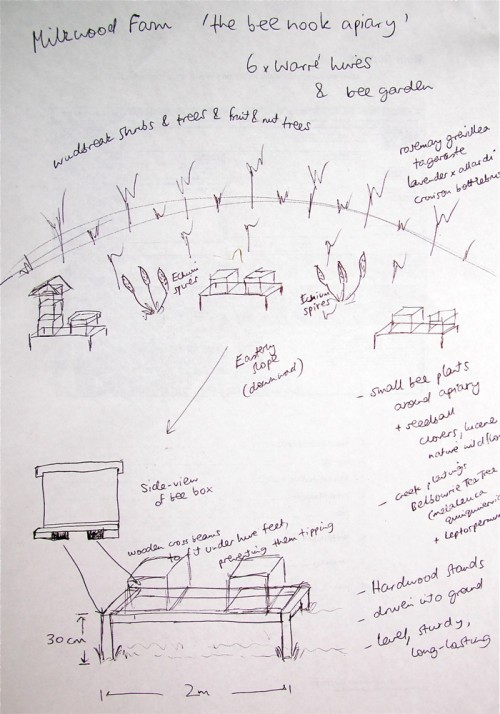 Milkwood Farm 'the bee nook apiary'
6 x Warré hives
& bee garden
windbreak shrubs & trees & fruit & nut trees
rosemary grevillea
tagasaste
lavender x allardi
crimson bottlebru
Echium
spires
Echium
spires
Easterly
slope
(downward)
- small bee plants
around apiary
+ seedball
clovers, lucerne
native wildflow
Side-view
of bee box
- creek plantings
Belbourie Tea Tree
(melaleuca
quinquenervia
+ leptospermum
wooden crossbeams
to fit under hive feet,
preventing them tipping
- Hardwood stands
- driven into ground
- level, sturdy,
long-lasting
30cm
2m